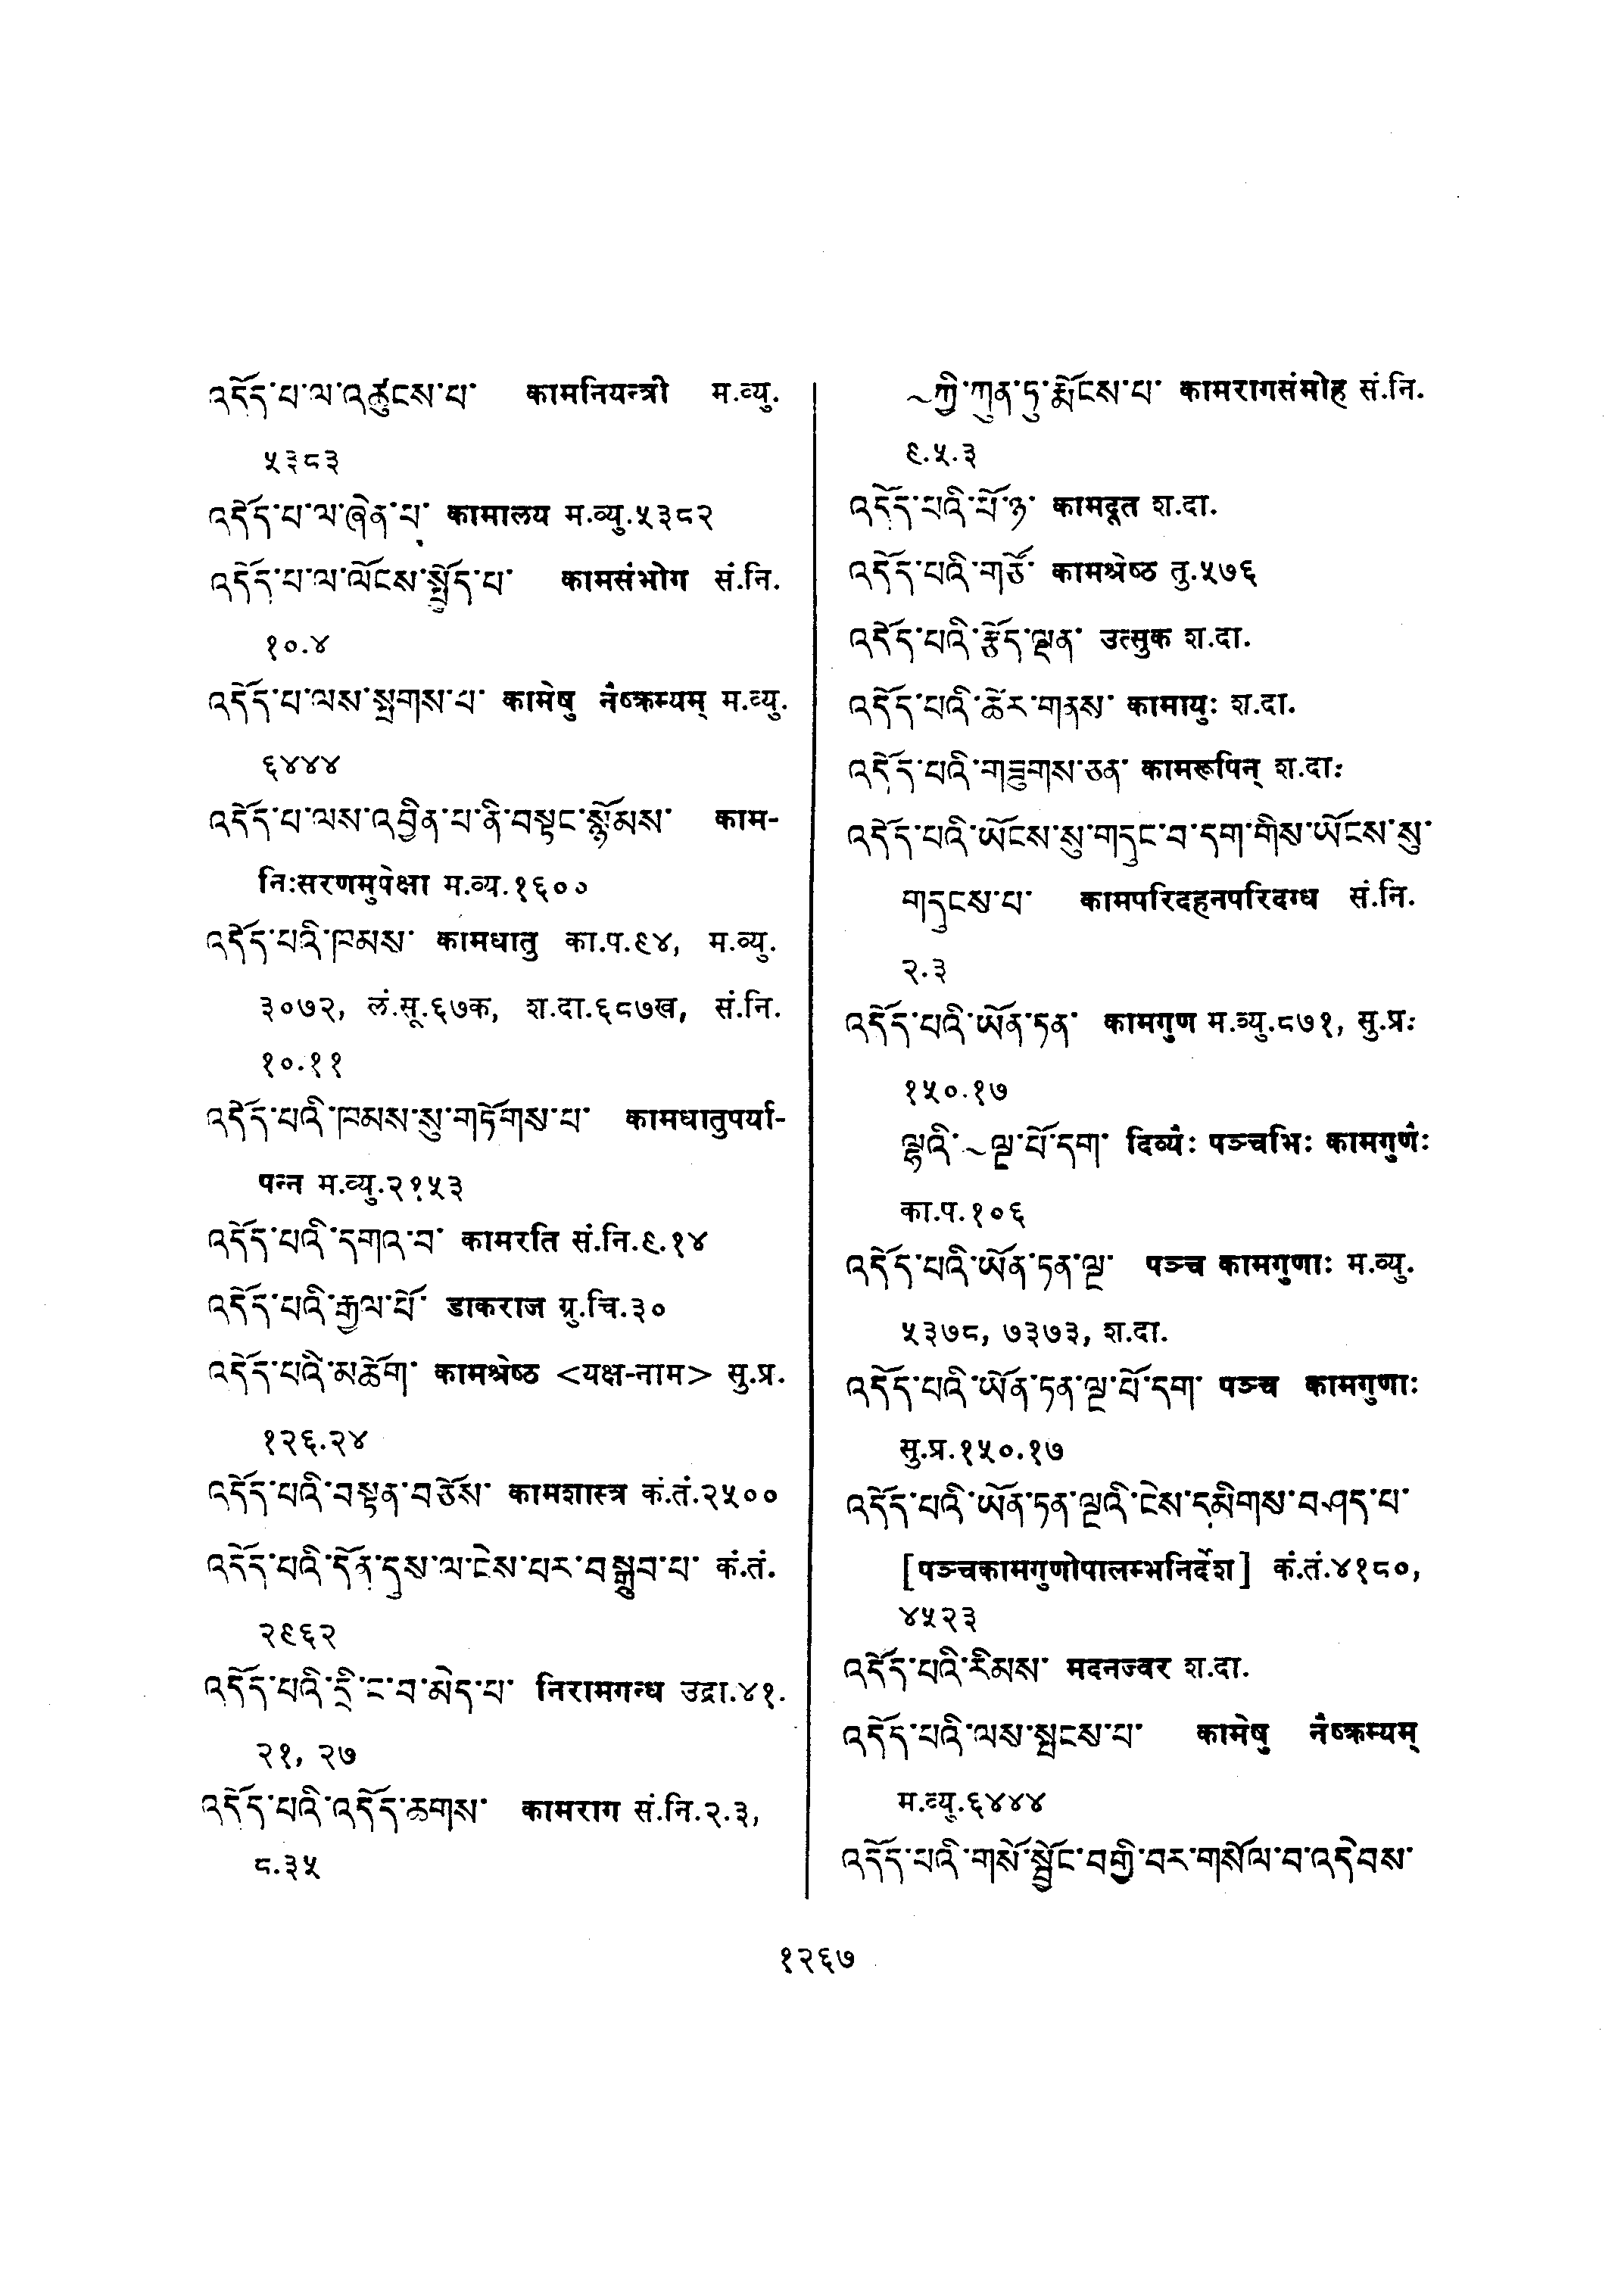 འདོད་པ་ལ་འཚུངས་པ་ कामनियन्त्री म.व्यु.
५३८३
འདོད་པ་ལ་ཞེན་པ་ कामालय म.व्यु.५३८२
འདོད་པ་ལ་ལོངས་སྤྱོད་པ་ कामसंभोग सं.नि.
१०.४
འདོད་པ་ལས་སྤྲགས་པ་ कामेषु नैष्क्रम्यम् म.व्यु.
६४४४
འདོད་པ་ལས་འབྱིན་པ་ནི་བསྟང་སྙོམས་ काम-
निःसरणमुपेक्षा म.व्य.१६००
འདོད་པའི་ཁམས་ कामधातु का.प.९४, म.व्यु.
३०७२, लं.सू.६७क, श.दा.६८७ख, सं.नि.
१०.११
འདོད་པའི་ཁམས་སུ་གཏོགས་པ་ कामधातुपर्या-
पन्न म.व्यु.२१५३
འདོད་པའི་དགའ་བ་ कामरति सं.नि.९.१४
འདོད་པའི་རྒྱལ་པོ་ डाकराज ग्रु.चि.३०
འདོད་པའི་མཆོག་ कामश्रेष्ठ <यक्ष-नाम> सु.प्र.
१२६.२४
འདོད་པའི་བསྟན་བཅོས་ कामशास्त्र कं.तं.२५००
འདོད་པའི་དོན་དུས་ལ་ངེས་པར་བསྒྲུབ་པ་ कं.तं.
२९६२
འདོད་པའི་དྲི་ང་བ་མེད་པ་ निरामगन्ध उद्रा.४१.
२१, २७
འདོད་པའི་འདོད་ཆགས་ कामराग सं.नि.२.३,
८.३५
~ཀྱི་ཀུན་ཏུ་རྨོངས་པ་ कामरागसंमोह सं.नि.
९.५.३
འདོད་པའི་པོ་ཉ་ कामदूत श.दा.
འདོད་པའི་གཙོ་ कामश्रेष्ठ तु.५७६
འདོད་པའི་རྩོད་ལྡན་ उत्सुक श.दा.
འདོད་པའི་ཚེར་གནས་ कामायुः श.दा.
འདོད་པའི་གཟུགས་ཅན་ कामरूपिन् श.दाः
འདོད་པའི་ཡོངས་སུ་གདུང་བ་དག་གིས་ཡོངས་སུ་
གདུངས་པ་ कामपरिदहनपरिदग्ध सं.नि.
२.३
འདོད་པའི་ཡོན་ཏན་ कामगुण म.व्यु.८७१, सु.प्रः
१५०.१७
ལྷའི་~ལྔ་པོ་དག་ दिव्यैः पञ्चभिः कामगुणैः
का.प.१०६
འདོད་པའི་ཡོན་ཏན་ལྔ་ पञ्च कामगुणाः म.व्यु.
५३७८, ७३७३, श.दा.
འདོད་པའི་ཡོན་ཏན་ལྔ་པོ་དག་ पञ्च कामगुणाः
सु.प्र.१५०.१७
འདོད་པའི་ཡོན་ཏན་ལྔའི་ངེས་དམིགས་བཤད་པ་
[पञ्चकामगुणोपालम्भनिर्देश] कं.तं.४१८०,
४५२३
འདོད་པའི་རིམས་ मदनज्वर श.दा.
འདོད་པའི་ལས་སྤངས་པ་ कामेषु नैष्क्रम्यम्
म.व्यु.६४४४
འདོད་པའི་གསོ་སྦྱོང་བགྱི་བར་གསོལ་བ་འདེབས་
१२६७